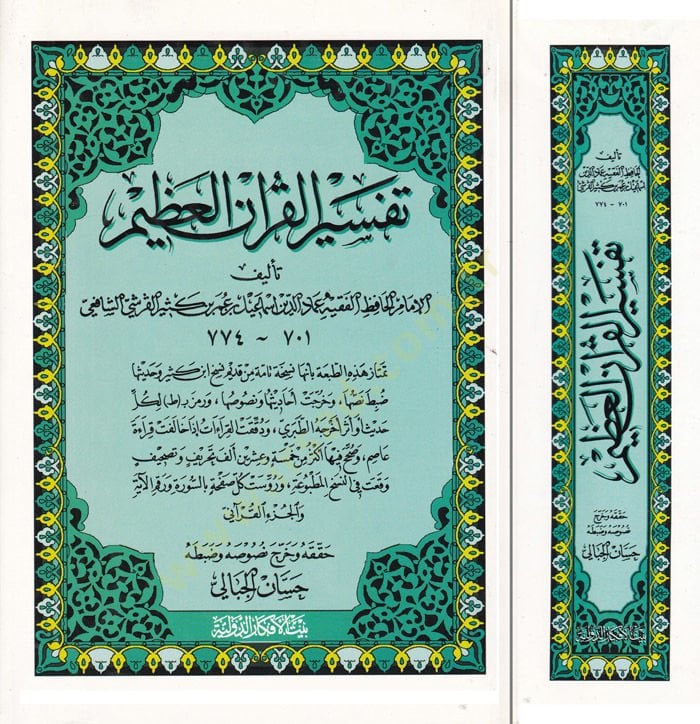 تفسير القرآن العظيم
تأليف
الإمام الحافظ الفقيه عماد الدين اسماعيل بن عمر بن كثير القرشي الشافعي
٧٠١ ~ ٧٧٤
تمتاز هذه الطبعة بأنها نسخة تامة من قديم نسخ ابن كثير وحديثها
ضبط نصها، وخرجت أحاديثها ونصوصها، ورمز بـ (ط) لكل
حديث أو أثر أخرجه الطبري، ودققت القراءات إذا خالفت قراءة
عاصم، وصحح فيها أكثر من خمسة وعشرين ألف تحريف وتصحيف
وقعت في النسخ المطبوعة، وروست كل صفحة بالسورة ورقم الآية
والجزء القرآني
حققه وخرج نصوصه وضبطه
حسان الجبالي
بيت الأفكار الدولية
تأليف
الحافظ الفقيه عماد الدين
اسماعيل بن عمر بن كثير القرشي
٧٠١ - ٧٧٤
تفسير القرآن العظيم
حققه وخرج
نصوصه وضبطه
حسان الجبالي
بيت الأفكار الدولية